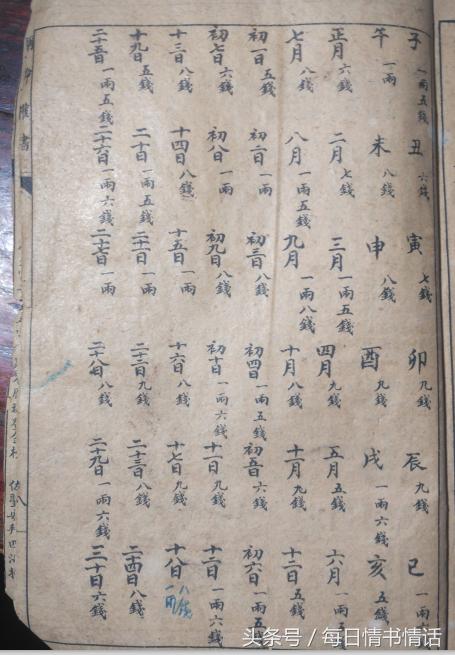 子 一兩五錢 丑 六錢 寅 七錢 卯 九錢 辰 九錢 巳 一兩
午 一兩 未 八錢 申 八錢 酉 九錢 戌 一兩六錢 亥 五錢
正月 六錢 二月 七錢 三月 一兩五錢 四月 九錢 五月 五錢 六月 一兩五
七月 八錢 八月 一兩五錢 九月 一兩八錢 十月 八錢 十一月 九錢 十二月 五錢
初一日 五錢 初二日 一兩 初三日 八錢 初四日 一兩五錢 初五日 六錢 初六日 一兩五錢
初七日 六錢 初八日 一兩 初九日 八錢 初十日 一兩六錢 十一日 九錢 十二日 一兩六錢
十三日 八錢 十四日 八錢 十五日 一兩 十六日 八錢 十七日 九錢 十八日 八錢
十九日 五錢 二十日 一兩五錢 二十一日 一兩 二十二日 九錢 二十三日 八錢 二十四日 八錢
二十五日 一兩五錢 二十六日 一兩六錢 二十七日 一兩 二十八日 八錢 二十九日 一兩六錢 三十日 六錢
頭条号 / 每日情书情话